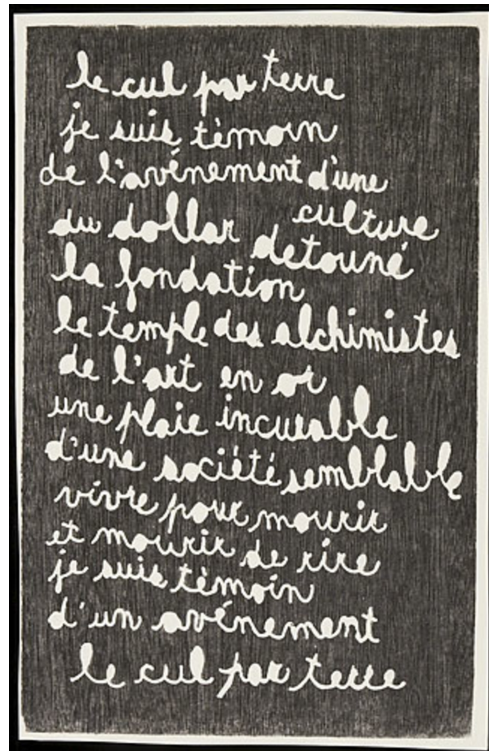 le cul par terre
je suis tèmoin
de l'avénement d'une
culture
du dollar detouné
la fondation
le temple des alchimistes
de l'art en or
une plaie incurable
d'une société semblable
vivre pour mourir
et mourir de rire
je suis tèmoin
d'un avénement
le cul par terre